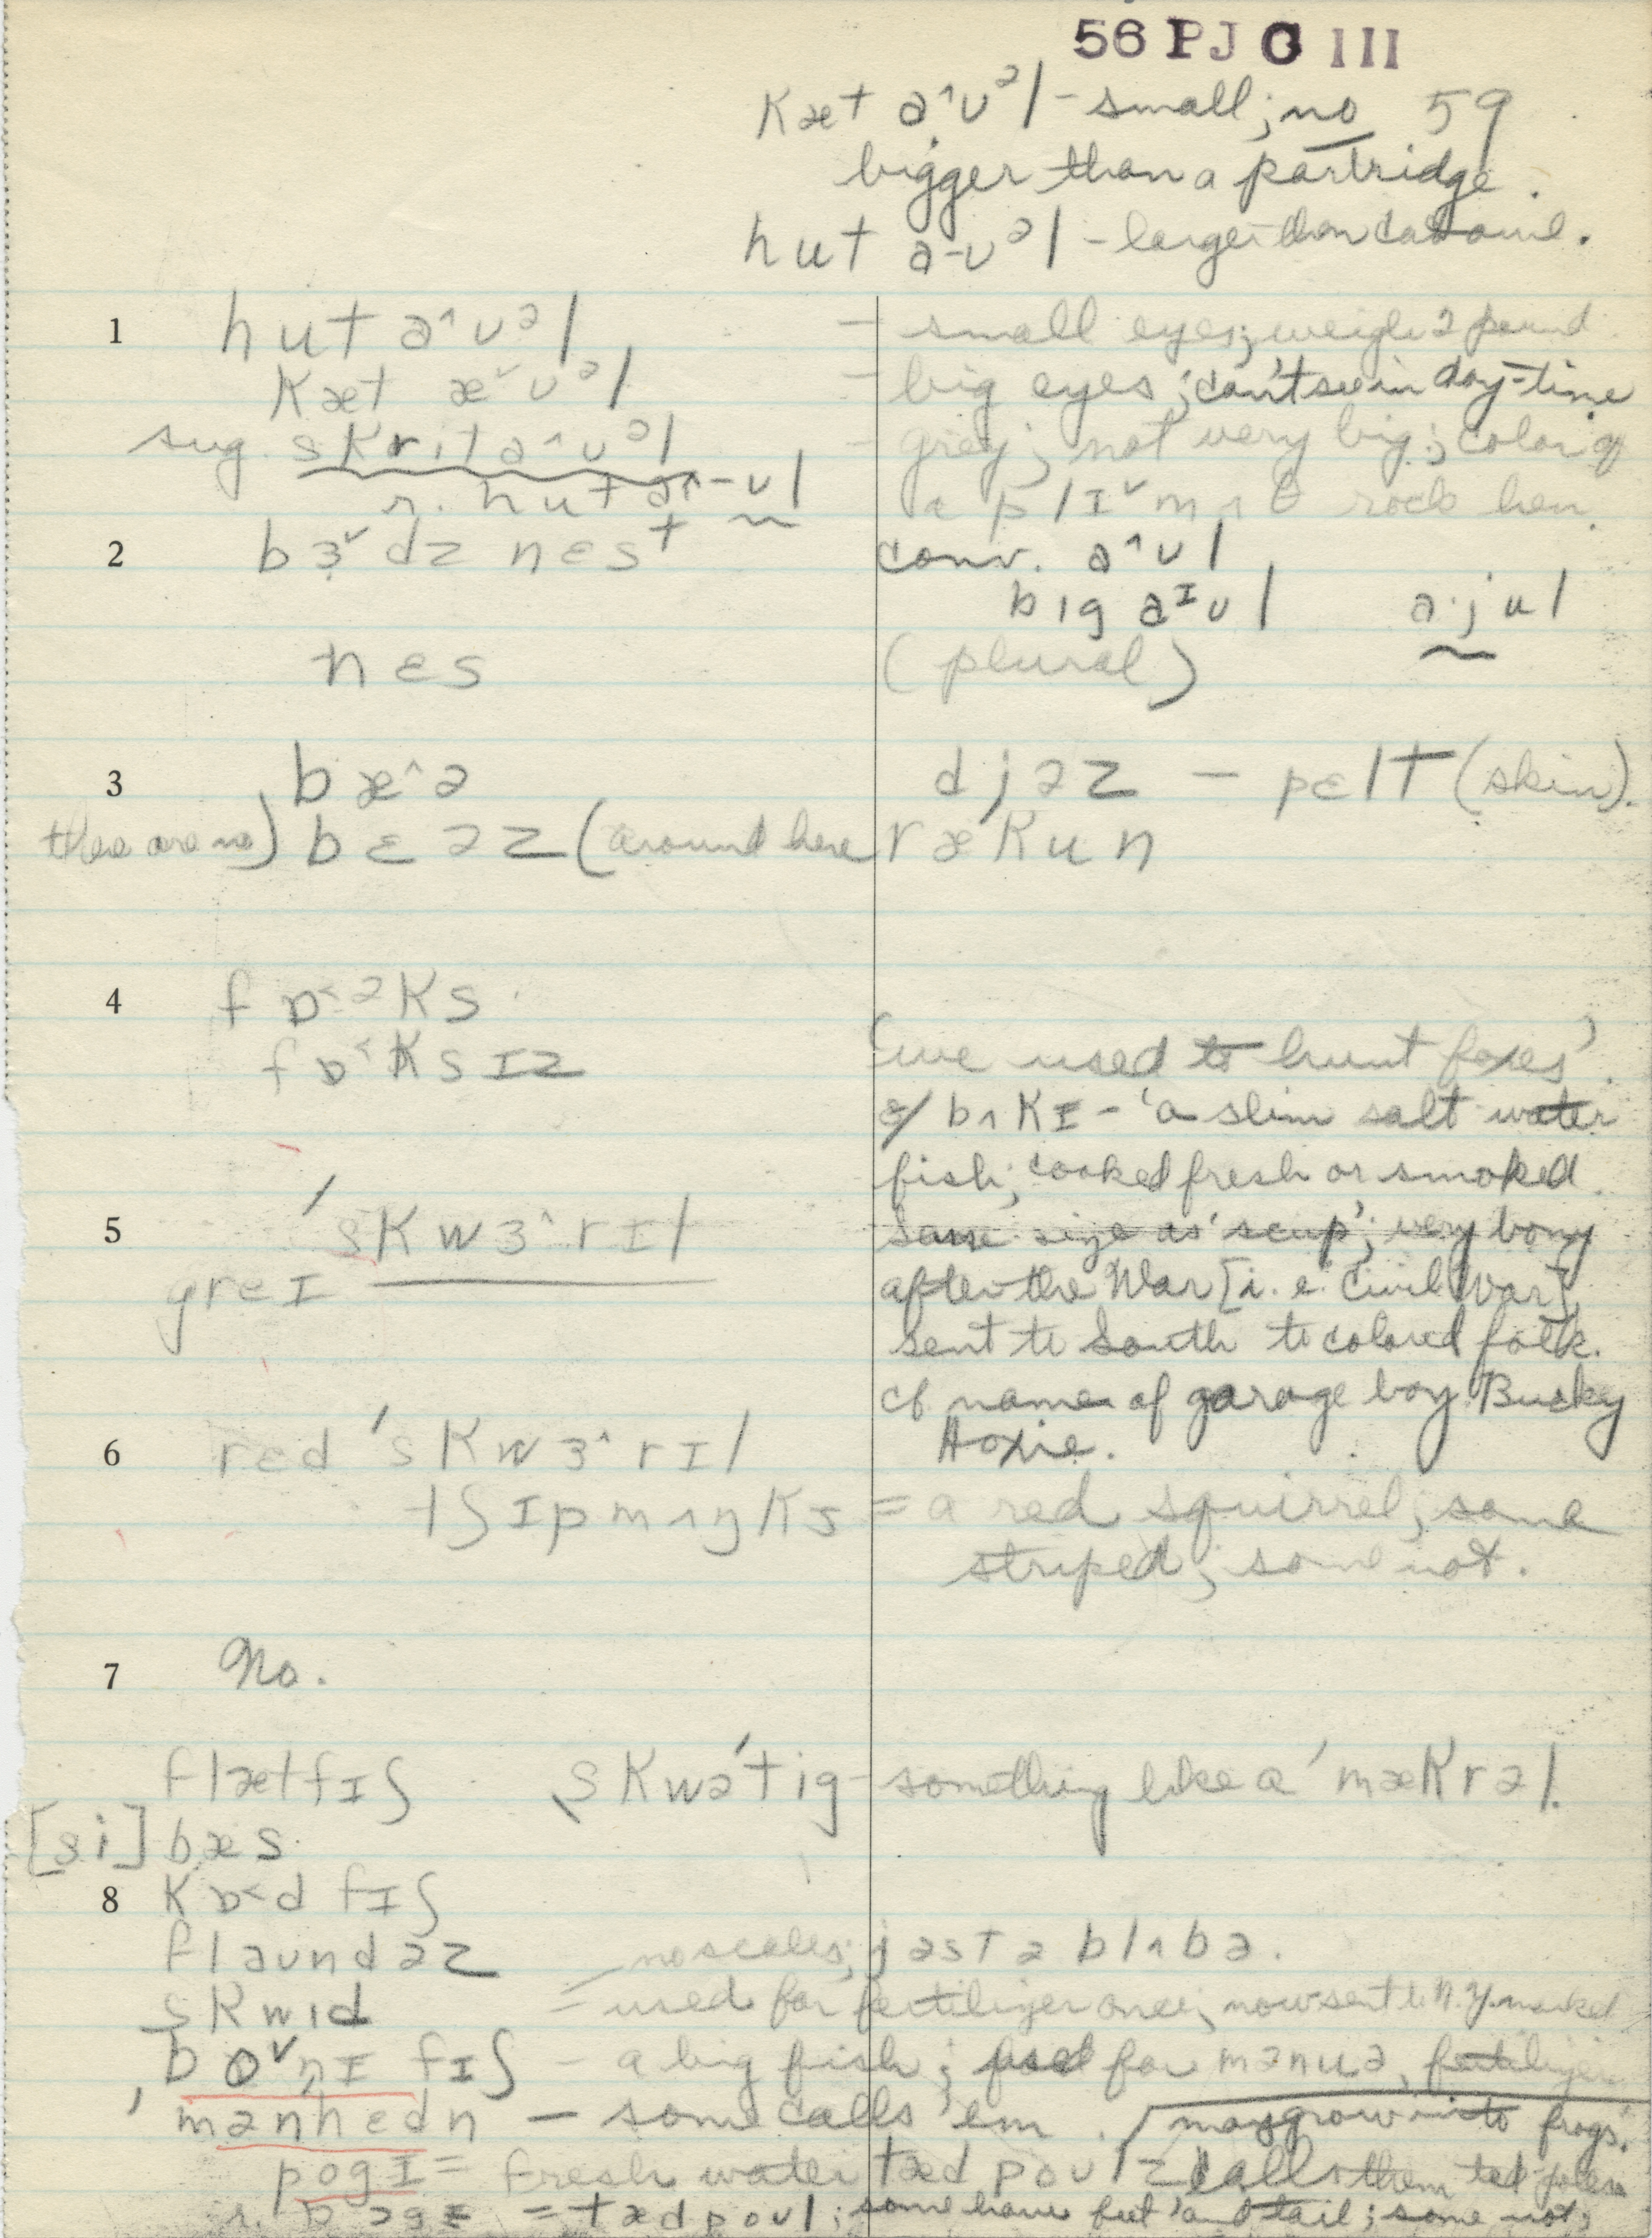 56 PJ G III
Kæt a^ʊᵊl – small; no 59
bigger than a partridge.
hut a-ʊᵊl – larger than cat owl.
1 hut a^ʊᵊl – small eyes; weigh 2 pound
Kæt æˇʊᵊl – big eyes; can't see in day-time
sug. skrit a^ʊᵊl – grey; not very big; color of
r. hut a^-ʊl a plIˇmʌθ rock hen.
2 bɜˇdz nɛst conv. a^ʊl
big aIʊl a·jul
nɛs (plural)
3 bæ^ə djəz – pɛlt (skin).
there are no) bɛəz (around here rækun
4 fɒ<əks
fɒ<ksIz 'we used to hunt foxes'.
bʌkI – 'a slim salt water
fish; cooked fresh or smoked.
same size as 'scup'; very bony
after the War [i.e. Civil War],
sent to South to colored folk.
cf name of garage boy Bucky
Hoxie.
5 'skwɜ^rIl
greI
6 red 'skwɜ^rIl
tʃIpmʌŋks = a red squirrel; some
striped; some not.
7 No.
flætfIʃ skwə'tig – something like a 'mækrəl.
[si] bæs
8 kɒ<d fIʃ
flaundəz – no scales; jəst ə blʌbə.
skwid = used for fertilizer once; now sent to N.Y. market
boˇnI fIʃ – a big fish; used for mənuə, fertilizer
mənhedn – some calls 'em. may grow into frogs.
pogI = fresh water tædpoulz calls them tad poles
= tædpoul; some have feet and tail; some not;